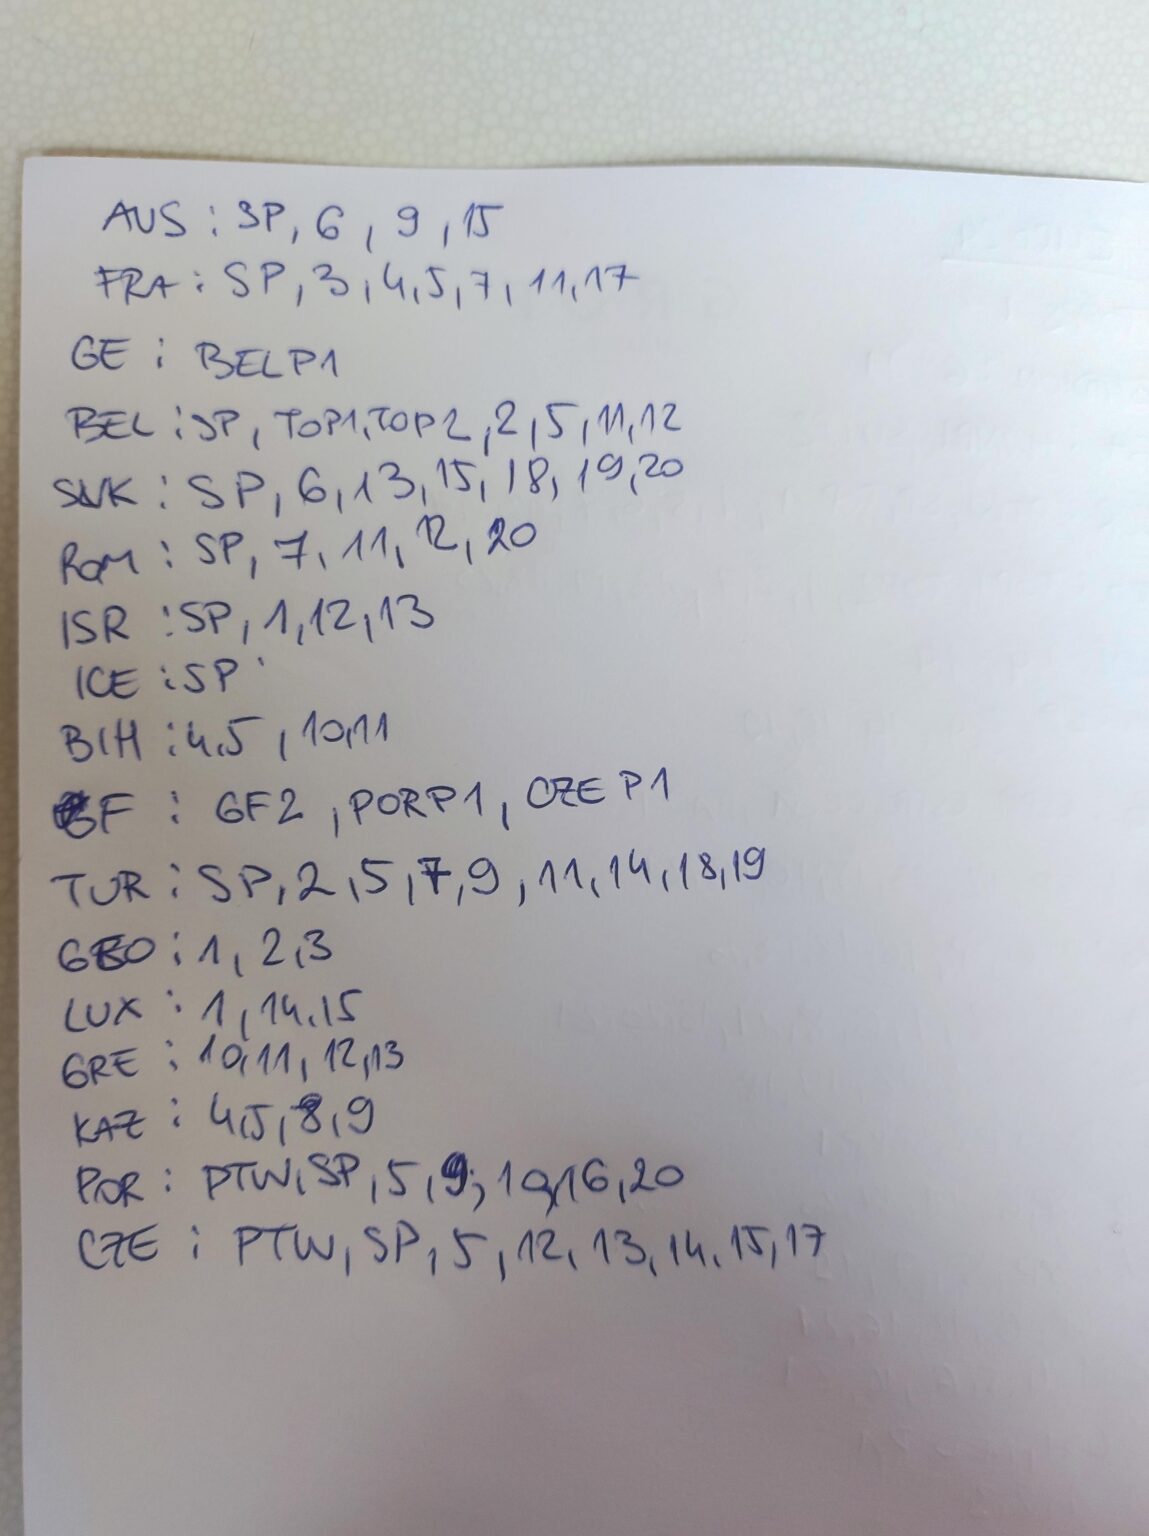 AUS : SP, 6, 9, 15
FRA : SP, 3, 4, 5, 7, 11, 17
GE : BEL P1
BEL : SP, TOP1, TOP2, 2, 5, 11, 12
SVK : SP, 6, 13, 15, 18, 19, 20
ROM : SP, 7, 11, 12, 20
ISR : SP, 1, 12, 13
ICE : SP
BIH : 4, 5, 10, 11
GF : GF2, POR P1, CZE P1
TUR : SP, 2, 5, 7, 9, 11, 14, 18, 19
GEO : 1, 2, 3
LUX : 1, 14, 15
GRE : 10, 11, 12, 13
KAZ : 4, 5, 8, 9
POR : PTW, SP, 5, 9, 10, 16, 20
CZE : PTW, SP, 5, 12, 13, 14, 15, 17